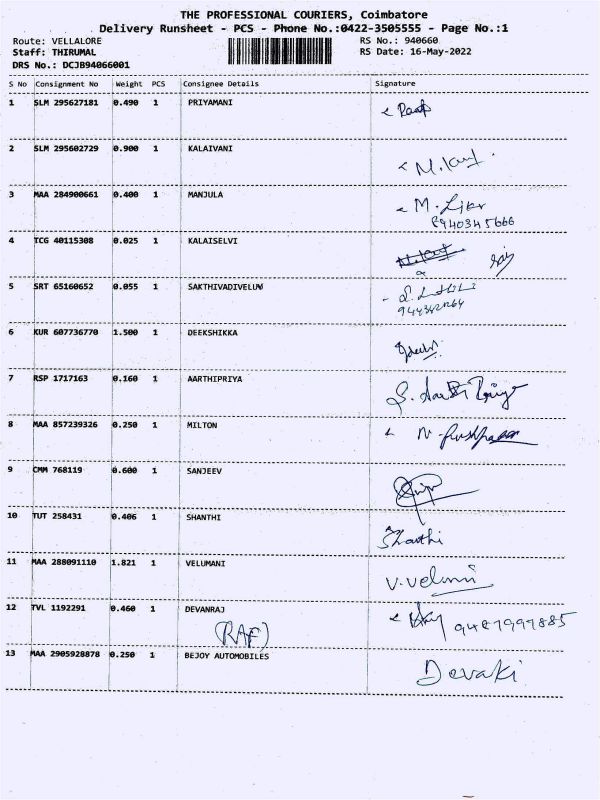 THE PROFESSIONAL COURIERS, Coimbatore
Delivery Runsheet - PCS - Phone No.:0422-3505555 - Page No.:1
Route: VELLALORE RS No.: 940660
Staff: THIRUMAL RS Date: 16-May-2022
DRS No.: DCJB94066001
S No Consignment No Weight PCS Consignee Details Signature
1 SLM 295627181 0.490 1 PRIYAMANI
2 SLM 295602729 0.900 1 KALAIVANI
3 MAA 284900661 0.400 1 MANJULA
8940345666
4 TCG 40115308 0.025 1 KALAISELVI
5 SRT 65160652 0.055 1 SAKTHIVADIVELUW
6 KUR 607736770 1.500 1 DEEKSHIKKA
7 RSP 1717163 0.160 1 AARTHIPRIYA
8 MAA 857239326 0.250 1 MILTON
9 CMM 768119 0.600 1 SANJEEV
10 TUT 258431 0.406 1 SHANTHI Shanthi
11 MAA 288091110 1.821 1 VELUMANI V.Velumani
12 TVL 1192291 0.460 1 DEVANRAJ 9487999885
(RAF)
13 MAA 2905928878 0.250 1 BEJOY AUTOMOBILES Devaki